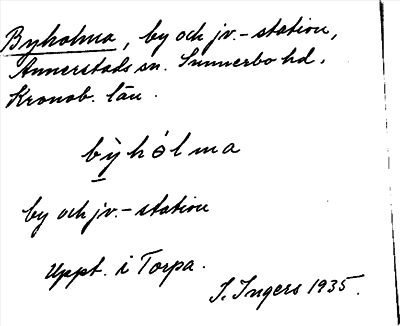 Byholma, by och jv.-station,
Annerstads sn. Sunnerbo hd.
Kronob. län.
bỳhólma
by och jv.-station
Uppt. i Torpa.
I. Ingers 1935.